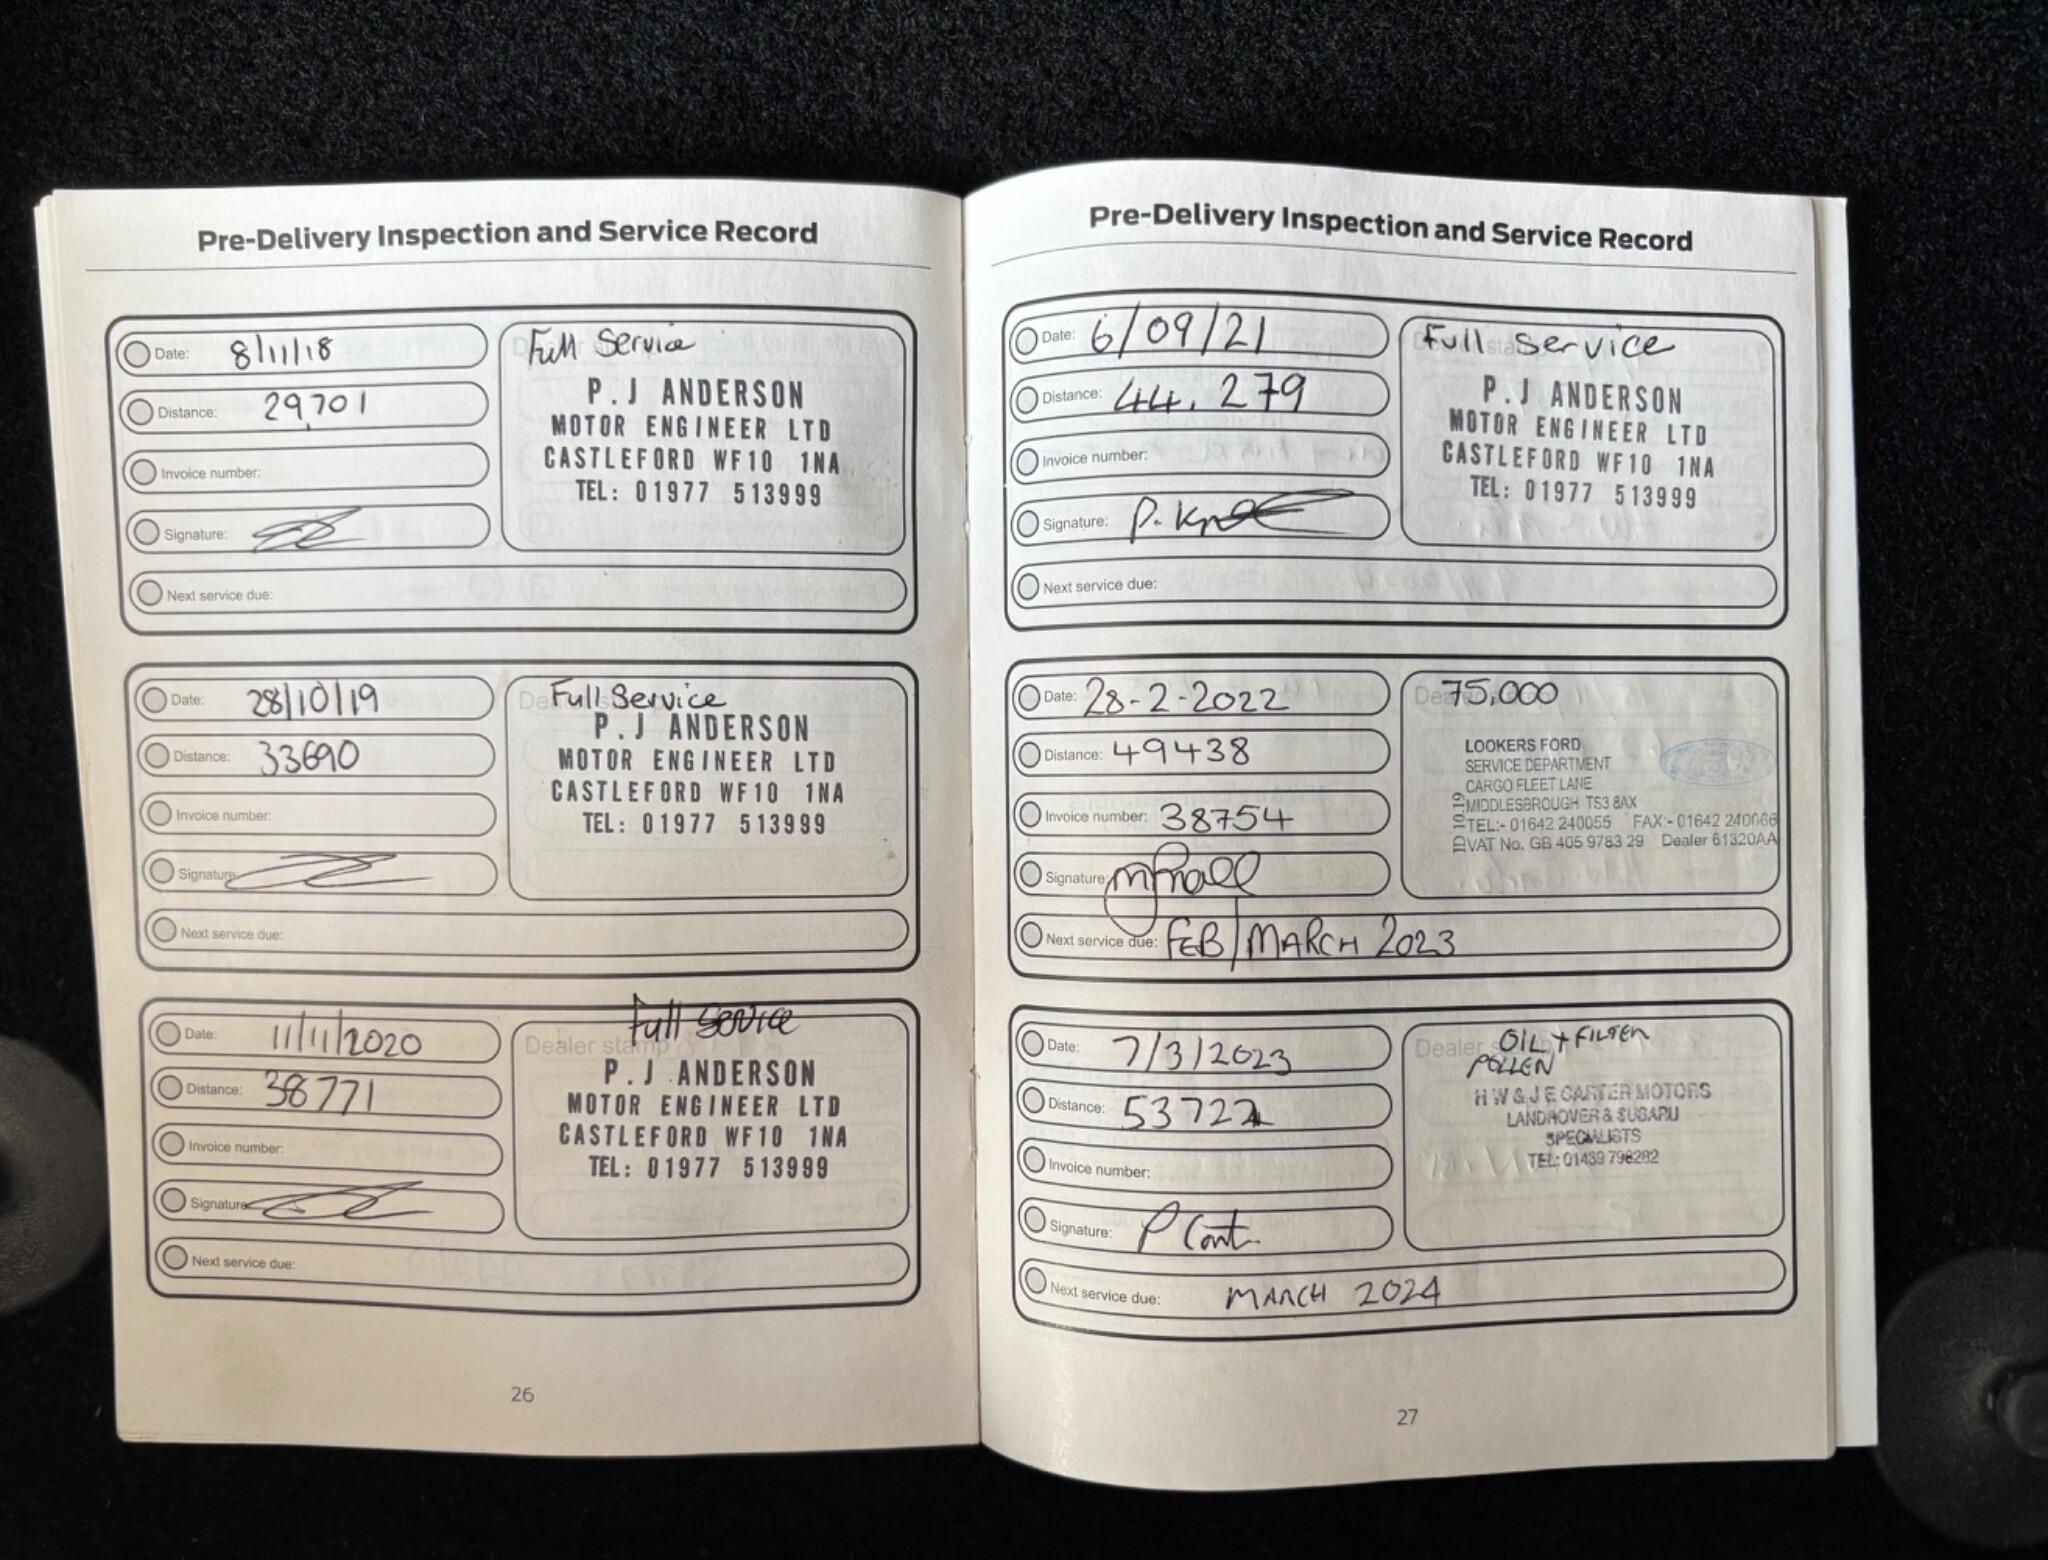 Pre-Delivery Inspection and Service Record
Date: 8/11/18
Distance: 29,701
Invoice number:
Signature:
Next service due:
Full Service
P.J ANDERSON
MOTOR ENGINEER LTD
CASTLEFORD WF10 1NA
TEL: 01977 513999
Date: 28/10/19
Distance: 33690
Invoice number:
Signature:
Next service due:
Full Service
P.J ANDERSON
MOTOR ENGINEER LTD
CASTLEFORD WF10 1NA
TEL: 01977 513999
Date: 11/11/2020
Distance: 38771
Invoice number:
Signature:
Next service due:
Full Service
Dealer stamp
P.J ANDERSON
MOTOR ENGINEER LTD
CASTLEFORD WF10 1NA
TEL: 01977 513999
26
Pre-Delivery Inspection and Service Record
Date: 6/09/21
Distance: 44.279
Invoice number:
Signature: P.
Next service due:
Full Service
P.J ANDERSON
MOTOR ENGINEER LTD
CASTLEFORD WF10 1NA
TEL: 01977 513999
Date: 28-2-2022
Distance: 49438
Invoice number: 38754
Signature:
Next service due: FEB/MARCH 2023
75,000
LOOKERS FORD
SERVICE DEPARTMENT
CARGO FLEET LANE
MIDDLESBROUGH TS3 8AX
TEL:- 01642 240055 FAX:- 01642 240066
VAT No. GB 405 9783 29 Dealer 61320AA
Date: 7/3/2023
Distance: 53722
Invoice number:
Signature: P
Next service due: MARCH 2024
Dealer
OIL + FILTER
POLLEN
H W & J E CARTER MOTORS
LANDROVER & SUBARU
SPECIALISTS
TEL: 01439 798282
27